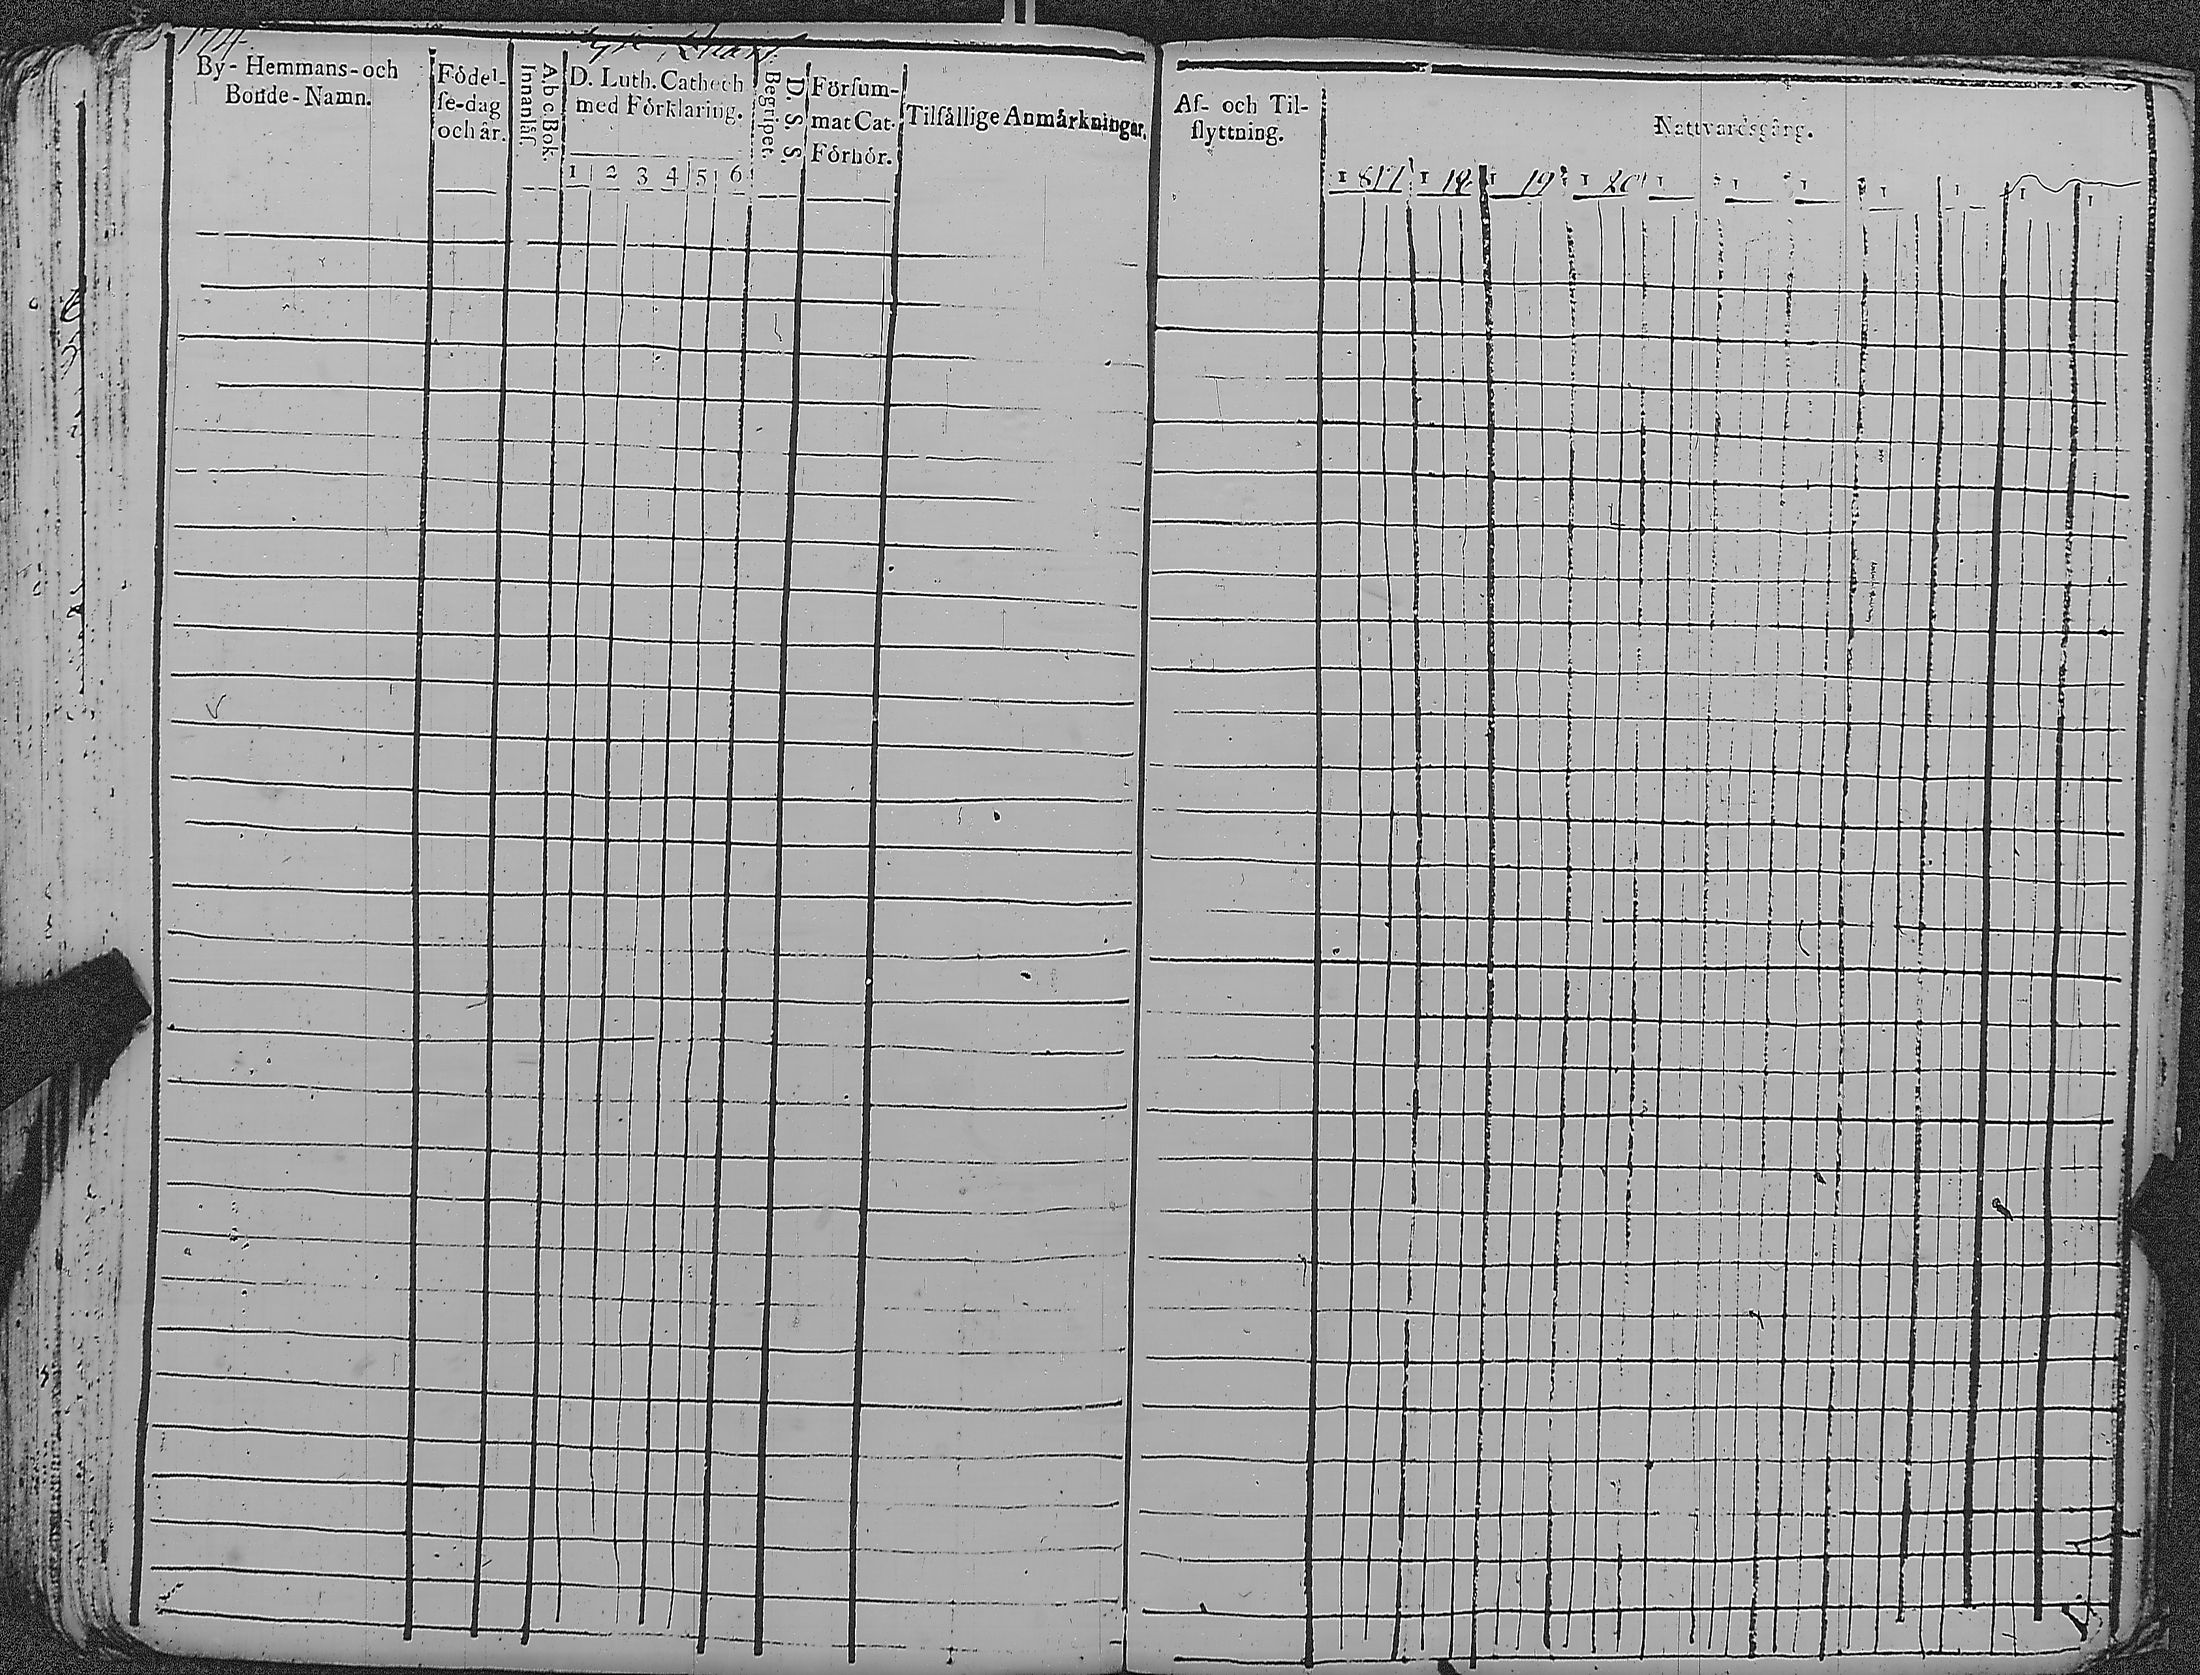 174
By- Hemmans- och
Bonde- Namn.
Fôdel-
ſe-dag
och âr.
Ab c Bok.
Innanlâſ.
D. Luth. Cathech
med Fôrklaring.
1 2 3 4 5 6
D. S. S.
Begripet.
Förſum-
mat Cat.
Fôrhôr.
Tilfâllige Anmârkningar.
Af- och Til-
flyttning.
Nattvardsgång.
1817 1 18 1 19 1 20 1 1 1 1 1 1 1